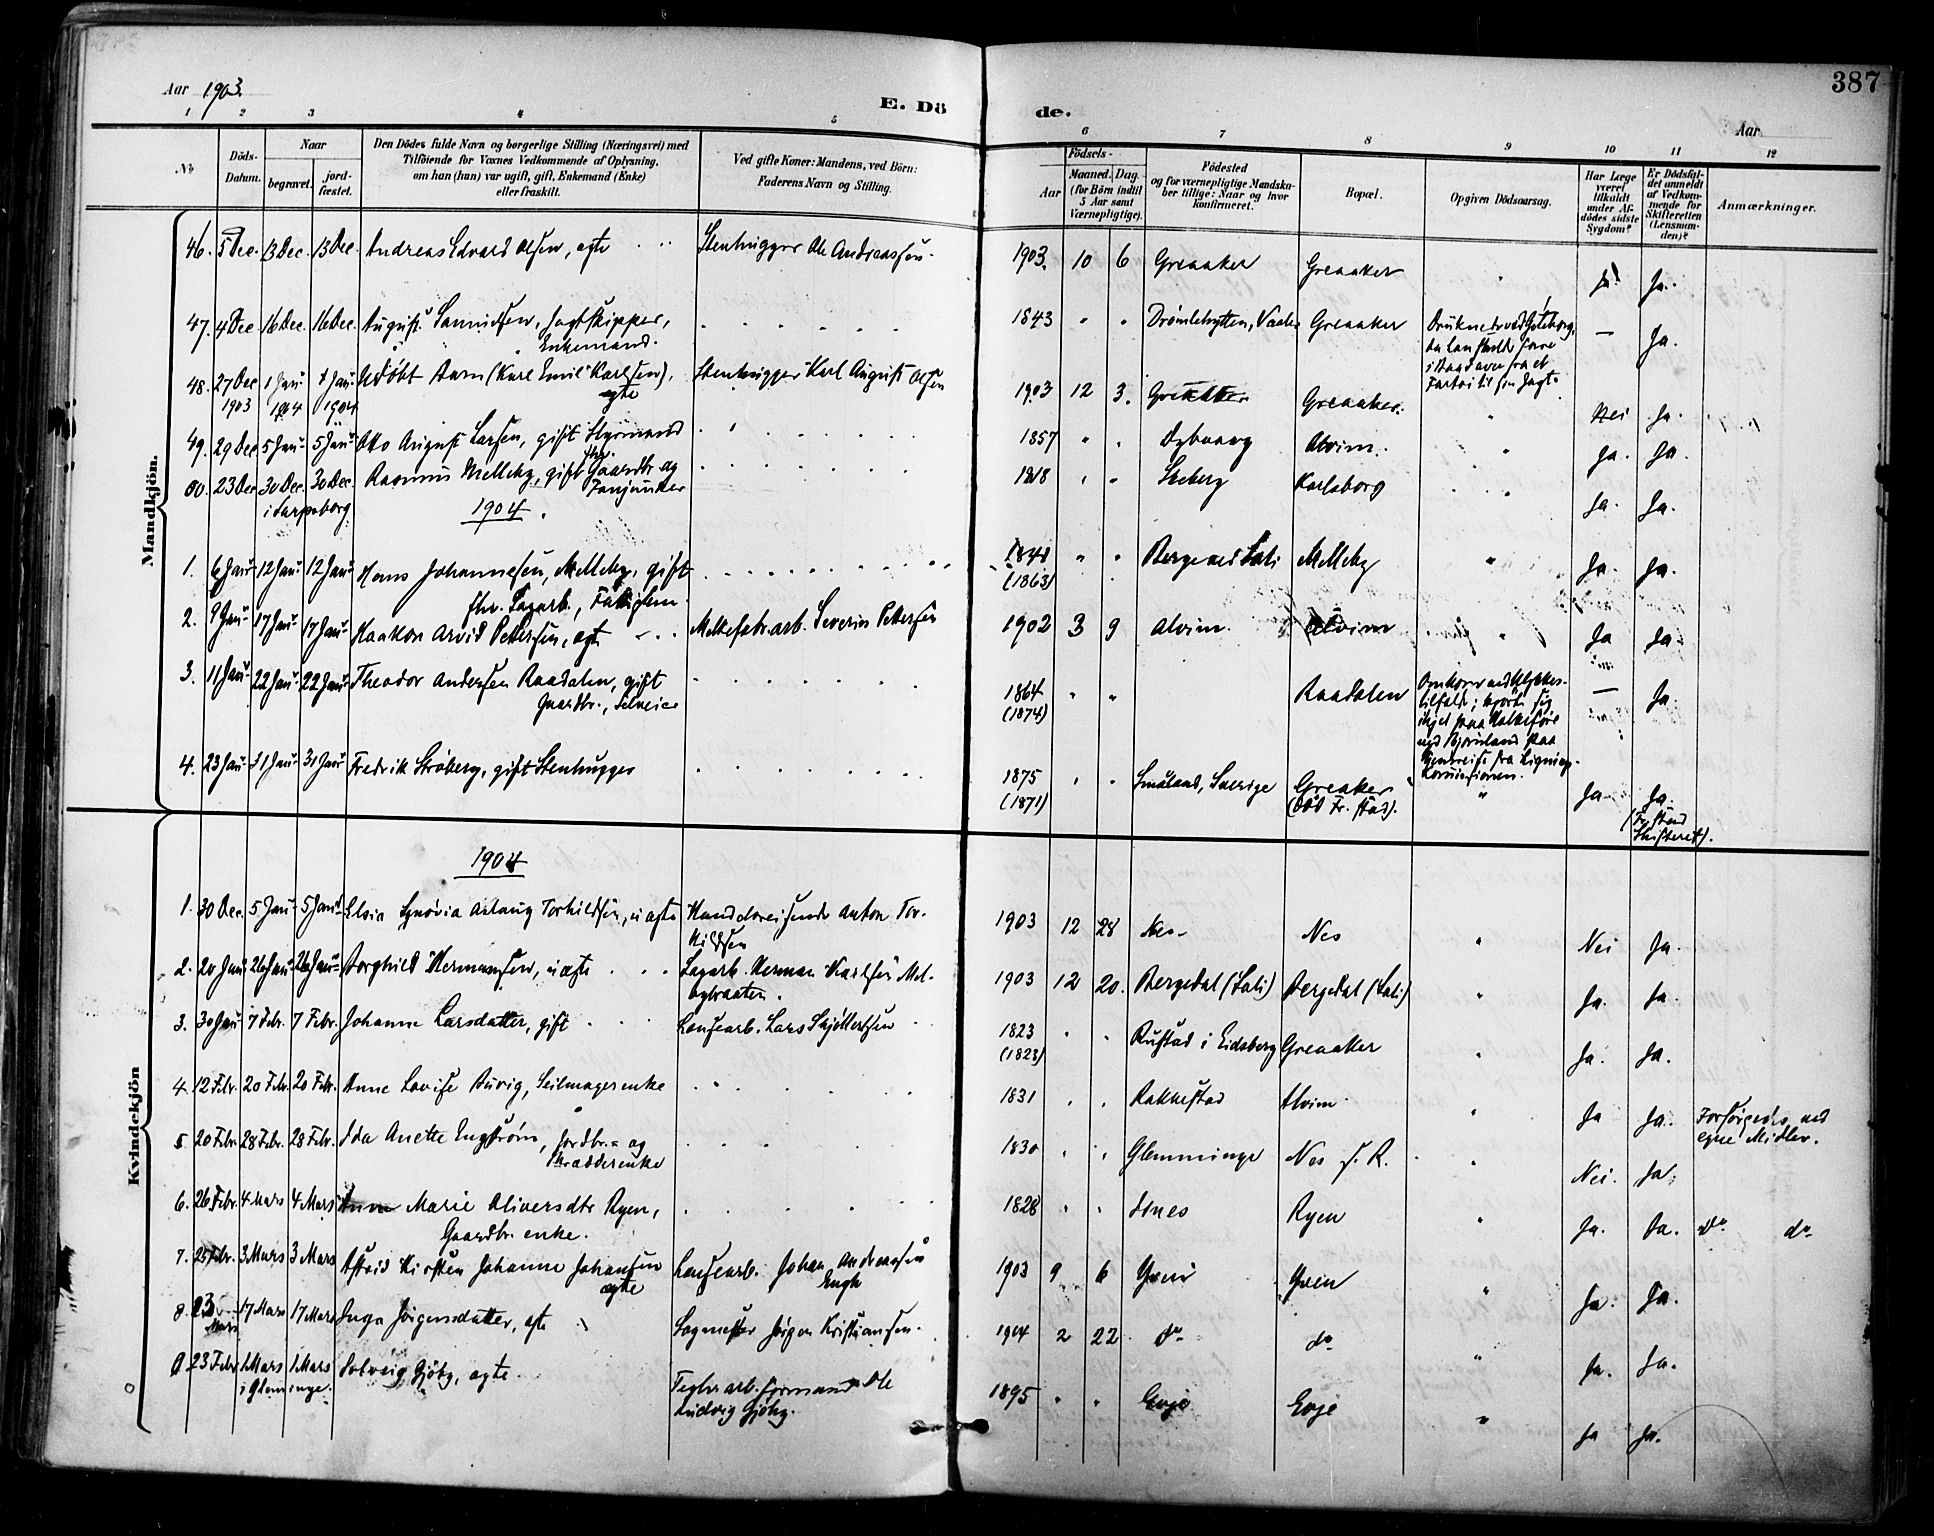 387
Aar 1903.
E. Dö de.
Aar
1 2 3 4 5 6 7 8 9 10 11 12
No
Döds-Datum.
Naar
begravet.
jord-fæstet.
Den Dödes fulde Navn og borgerlige Stilling (Næringsvei) med
Tilföiende for Voxnes Vedkommende af Oplysning,
om han (hun) var ugift, gift, Enkemand (Enke)
eller fraskilt.
Ved gifte Koner: Mandens, ved Börn:
Faderens Navn og Stilling.
Födsels-
Aar
Maaned. Dag.
(for Börn indtil
5 Aar samt
Værnepligtige).
Födested
og for værnepligtige Mandska-
ber tillige: Naar og hvor
konfirmeret.
Bopæl.
Opgiven Dödsaarsag.
Har Læge
været
tilkaldt
under Af-
dödes sidste
Sygdom?
Er Dödsfal-
det anmeldt
af Vedkom-
mende for
Skifteretten
(Lensman-
den)?
Anmærkninger.
Mandkjön.
46. 5 Dec. 13 Dec. 13 Dec. Andreas Edvard Olsen, ægte Stenhugger Ole Andreassen. 1903. 10 6 Greaaker Greaaker " Ja Ja.
47. 4 Dec 16 Dec. 16 Dec. August Samuelsen, Jagtskipper,
Enkemand. 1843 " " Greaaker — Ja.
48. 27 Dec 1 Jan 1 Jan Udøbt Barn (Karl Emil Karlsen), Stenhugger Karl August Olsen
1903 1904 1904 ægte 1903 12 3. Greaaker Greaaker. " Nei Ja.
49. 29 Dec 5 Jan 5 Jan Otto August Larsen, gift Styrmand 1857 " " Alvim. " Ja. Ja.
50. 23 Dec 30 Dec. 30 Dec. Rasmus Melleby, gift fhv. Gaardbr. og
i Sarpsborg Fanjunker 1818 " " Skeberg Karlsborg " Ja. Ja.
1904.
1. 6 Jan 12 Jan 12 Jan Hans Johannesen, Melleby, gift
fhv. Sagarb., Fattiglem. 1841
(1863) " " Berge ved Lali Melleby " Ja. Ja.
2. 9 Jan 17 Jan 17 Jan Haakon Arvid Pettersen, ægte Melkefabr. arb. Severin Pettersen 1902 3 9 Alvim. Alvim " Ja Ja.
3. 11 Jan 22 Jan 22 Jan Theodor Andersen Raadalen, gift
Gaardbr., Selveier 1864
(1874) " " Raadalen — Ja.
4. 23 Jan 31 Jan 31 Jan Fredrik Strøberg, gift Stenhugger 1875
(1871) " " Småland, Sverige Greaker " Ja Ja
(Fr.stad
Skifteret).
Kvindekjön
1904
1. 30 Dec. 5 Jan 5 Jan Synøvia Aslaug Torkildsen, uægte Handelsreisende Anton Tor-
kildsen 1903 12 28 Nes Nes " Nei Ja.
2. 20 Jan 26 Jan 26 Jan Borghild Hermansen, uægte Sagarb. Herman Karlsen 1903 12 20. Bergedal (Lali) Bergedal (Lali) " Ja. Ja.
3. 30 Jan 7 Febr. 7 Febr. Johanne Larsdatter, gift Løsearb. Lars 1823
(1823) " " Rustad i Eidsberg Greaaker " Ja. Ja.
4. 12 Febr. 20 Febr. 20 Febr. Anne Lovise Buvig, Seilmagerenke 1831 " " Rakkestad Alvim. " Ja Ja. Forsørgedes ved
egne Midler.
5 20 Febr. 28 Febr. 28 Febr. Ida Anette Engstrøm, Jordbr. og
Skrædderenke 1830 " " Glemminge Nes f. R. " Nei. Ja.
6. 26 Febr. 4 Mars 4 Mars Anne Marie Oliversdtr Ryen,
Gaardbr. enke. 1828 " " Ryen " Ja. Ja. do do
7. 25 Febr. 3 Mars 3 Mars Astrid Kirsten Johanne Johansen
ægte Løsearb. Johan Andreassen
Engh 1903 9 6 " Ja. Ja.
8. 23 Mars 17 Mars 17 Mars Inga Jørgensdatter, ægte Sagmester Jørgen Kristiansen. 1904 2 22 do do " Ja. Ja.
9 23 Febr 1 Mars 1 Mars Solveig Gjøby, ægte.
i Glem inge. Teglv. arb. formand Ole
Ludvig Gjøby. 1895 " " Evje Evje " Ja Ja.